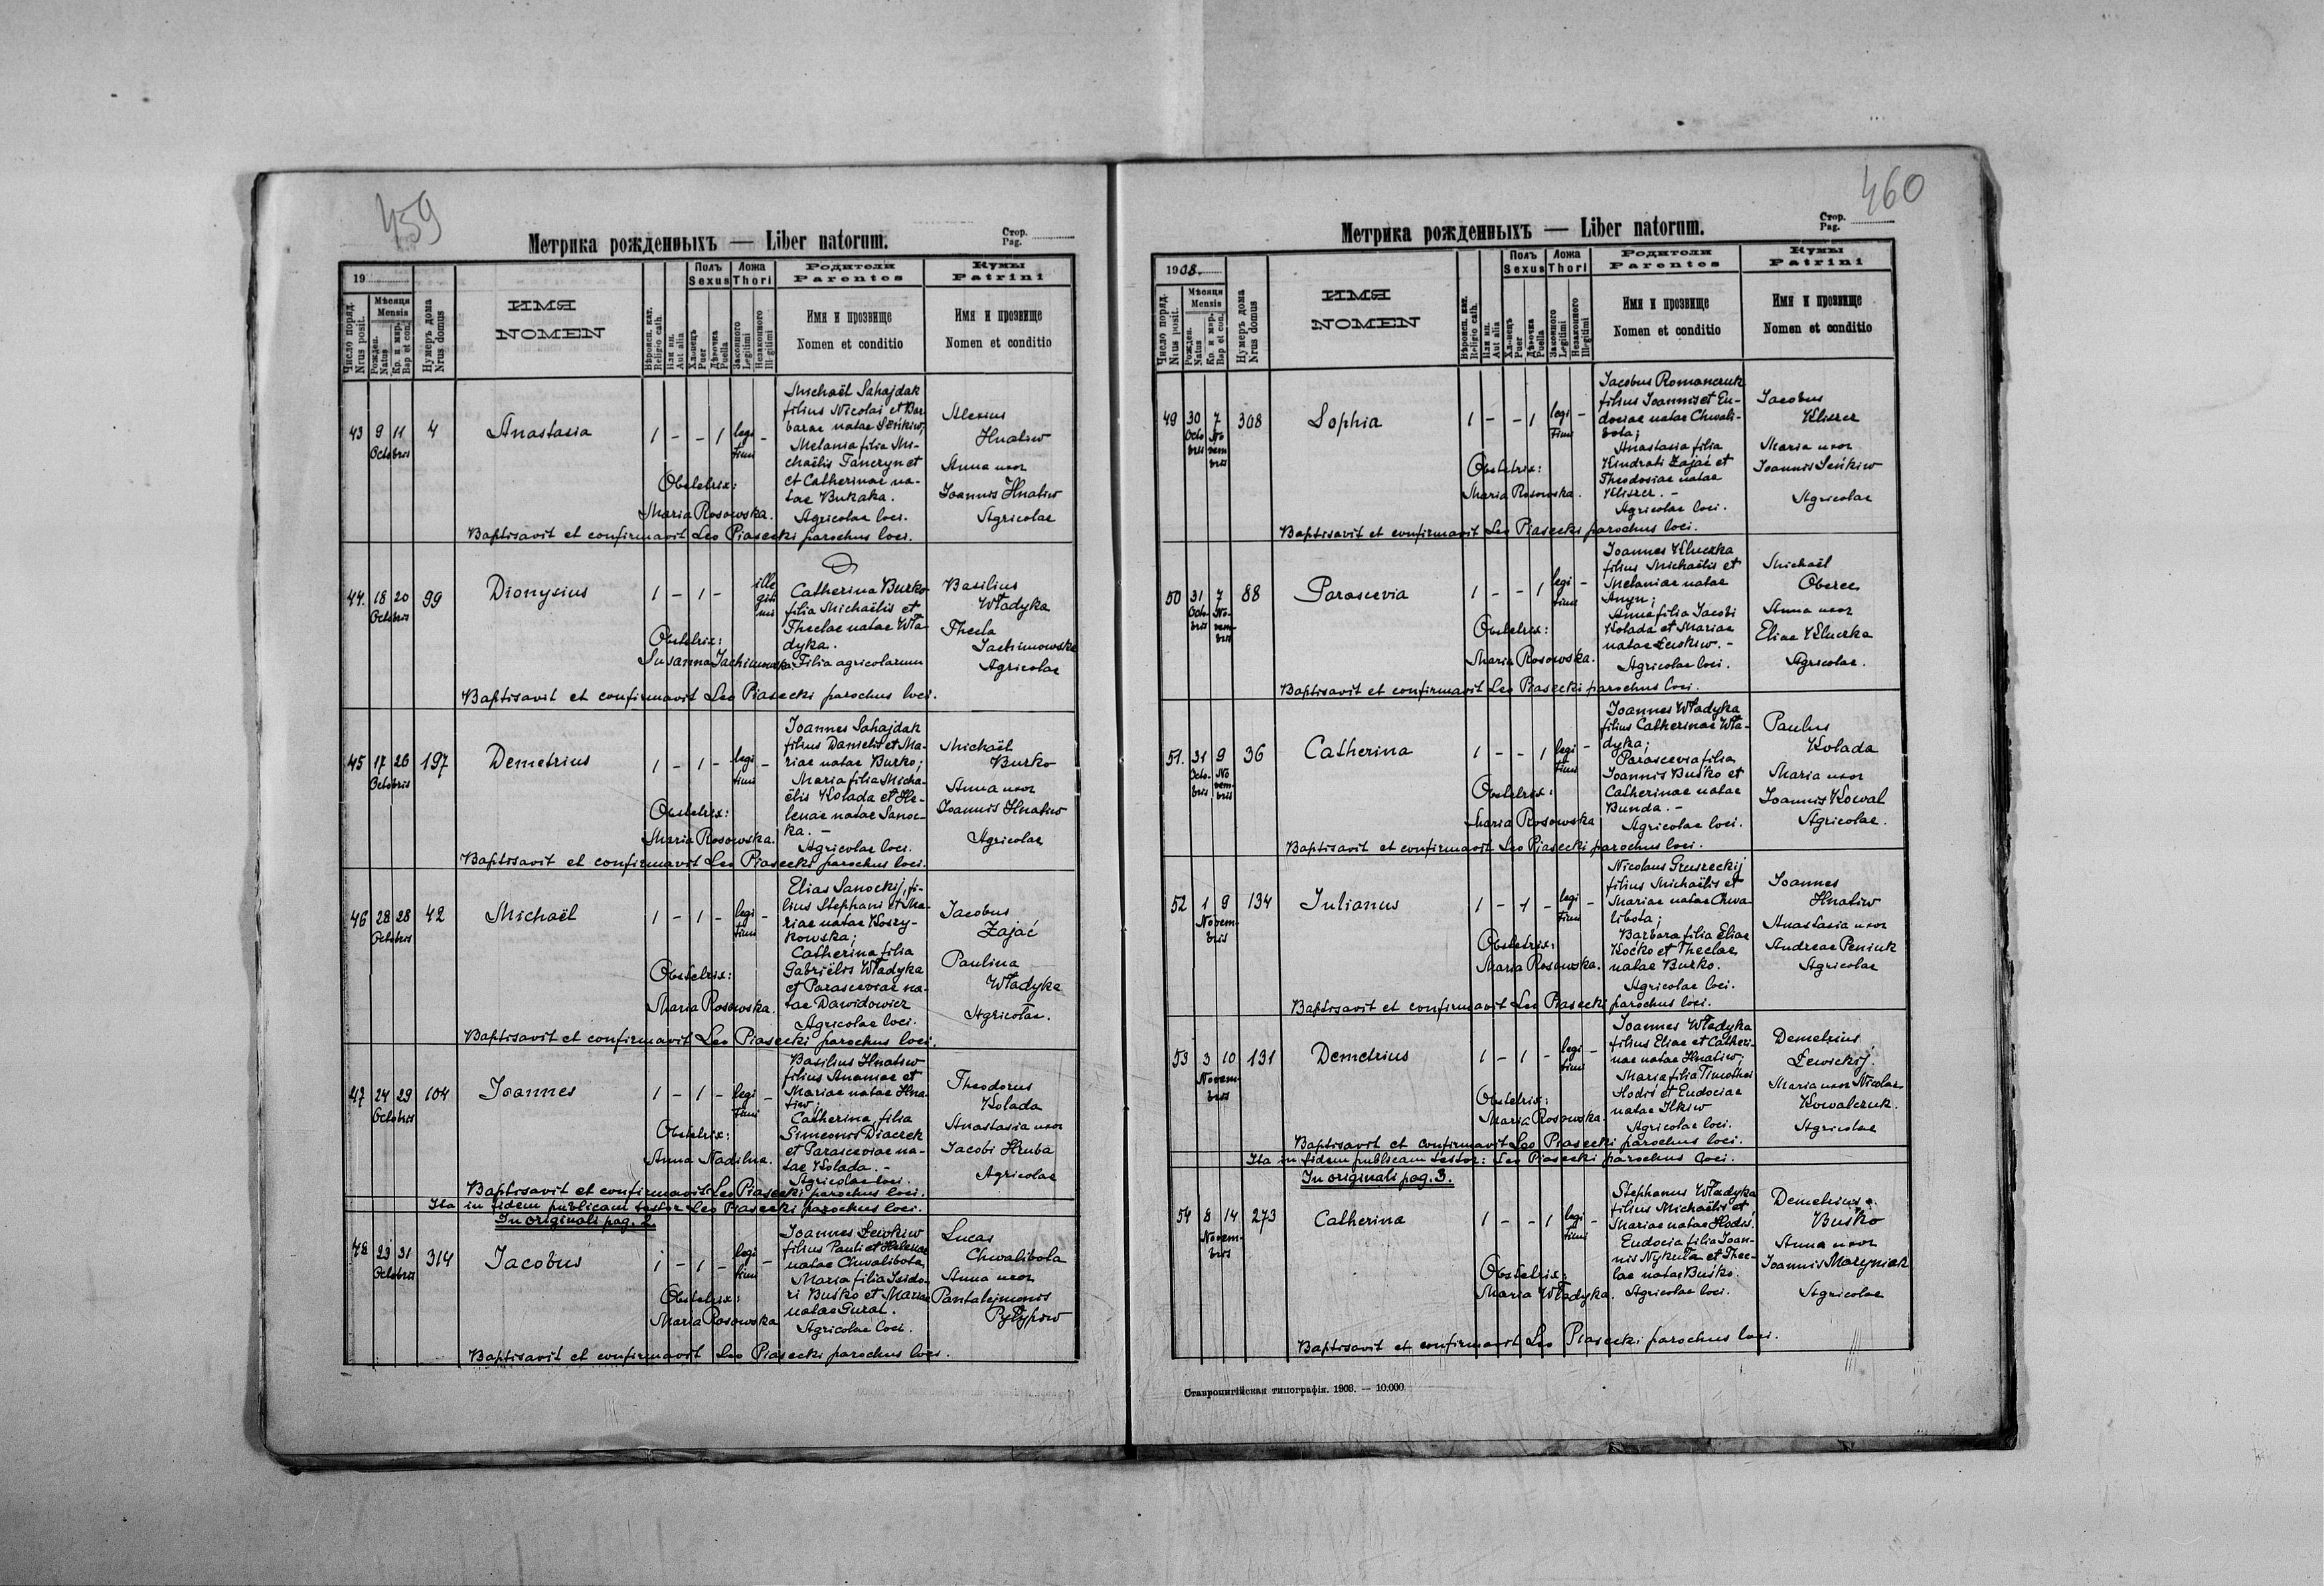 459
Метрика рожденныхъ — Liber natorum.
Стор.
Pag.
19
Число поряд.
Nrus posit.
Мѣсяця
Mensis
Рожден.
Natus
Кр. и мир.
Bap et con.
Нумеръ дома
Nrus domus
ИМЯ
NOMEN
Вѣроисп. кат.
Religio cath.
Или ин.
Aut alia
Полъ
Sexus
Хлопець
Puer
Дѣвочка
Puella
Ложа
Thori
Законного
Legitimi
Незаконного
Illegitimi
Родители
Parentes
Имя и прозвище
Nomen et conditio
Кумы
Patrini
Имя и прозвище
Nomen et conditio
43 9 11 4 Anastasia 1 - - 1 legi -
Octobris timi
Michaël Sahajdak
filius Nicolai et Bar
barae natae Seńkiw;
Melania filia Mi-
chaëlis Tanczyn et
et Catherinae na-
tae Bukaka.
Agricolae loci.
Alexius
Hnatiw
Anna uxor
Joannis Hnatiw
Agricolae
Obstetrix:
Maria Rosowska.
Baptisavit et confirmavit Leo Piasecki parochus loci.
44. 18 20 99 Dionysius 1 - 1 - ille
Octobris giti
mi
Catherina Burko
filia Michaëlis et
Theclae natae Wła-
dyka.
Filia agricolarum
Basilius
Władyka
Thecla
Jachimowska
Agricolae
Obstetrix:
Susanna Jachimowska.
Baptisavit et confirmavit Leo Piasecki parochus loci.
45 17 26 197 Demetrius 1 - 1 - legi -
Octobris timi
Joannes Sahajdak
filius Danielis et Ma-
riae natae Burko;
Maria filia Micha-
ëlis Kolada et He-
lenae natae Sanoc-
ka. -
Agricolae loci.
Michaël
Burko
Anna uxor
Joannis Hnatiw
Agricolae
Obstetrix:
Maria Rosowska.
Baptisavit et confirmavit Leo Piasecki parochus loci.
46 28 28 42 Michaël 1 - 1 - legi -
Octobris timi
Elias Sanockij, fi-
lius Stephani et Ma-
riae natae Koszy-
kowska;
Catherina filia
Gabriëlis Władyka
et Parasceviae na-
tae Dawidowicz
Agricolae loci.
Jacobus
Zając
Paulina
Władyka
Agricolae.
Obstetrix:
Maria Rosowska.
Baptisavit et confirmavit Leo Piasecki parochus loci.
47 24 29 104 Joannes 1 - 1 - legi -
Octobris timi
Basilius Hnatiw
filius Ananiae et
Mariae natae Hna-
tiw;
Catherina filia
Simeonis Diaczek
et Parasceviae na-
tae Kolada. -
Agricolae loci.
Theodorus
Kolada
Anastasia uxor
Jacobi Hruba
Agricolae
Obstetrix:
Anna Nadilna.
Baptisavit et confirmavit Leo Piasecki parochus loci.
Ita in fidem publicam testor Leo Piasecki parochus loci.
In originali pag. 2.
48 23 31 314 Jacobus 1 - 1 - legi -
Octobris timi
Joannes Lewkiw
filius Pauli et Helenae
natae Chwalibota
Maria filia Isido-
ri Buśko et Mariae
natae Gural.
Agricolae loci.
Lucas
Chwalibota
Anna uxor
Pantalejmonis
Pyłypiw
Obstetrix:
Maria Rosowska
Baptisavit et confirmavit Leo Piasecki parochus loci.
460
Метрика рожденныхъ — Liber natorum.
Стор.
Pag.
1908.
Число поряд.
Nrus posit.
Мѣсяця
Mensis
Рожден.
Natus
Кр. и мир.
Bap et con.
Нумеръ дома
Nrus domus
ИМЯ
NOMEN
Вѣроисп. кат.
Religio cath.
Или ин.
Aut alia
Полъ
Sexus
Хлопець
Puer
Дѣвочка
Puella
Ложа
Thori
Законного
Legitimi
Незаконного
Illegitimi
Родители
Parentes
Имя и прозвище
Nomen et conditio
Кумы
Patrini
Имя и прозвище
Nomen et conditio
49 30 7 308 Sophia 1 - - 1 legi -
Octo No timi
bris vem
bris
Jacobus Romanczuk
filius Joannis et Eu-
dociae natae Chwali-
bota;
Anastasia filia
Kindrati Zając et
Theodosiae natae
Kliszcz. -
Agricolae loci.
Jacobus
Kliszcz
Maria uxor
Joannis Seńkiw
Agricolae
Obstetrix:
Maria Rosowska.
Baptisavit et confirmavit Leo Piasecki parochus loci.
50 31 7 88 Parascevia 1 - - 1 legi -
Octo- No- timi
bris vem-
bris
Joannes Kluczka
filius Michaëlis et
Melaniae natae
Anyn;
Anna filia Jacobi
Kolada et Mariae
natae Lewkiw. -
Agricolae loci.
Michaël
Oberec
Anna uxor
Eliae Kluczka
Agricolae.
Obstetrix:
Maria Rosowska.
Baptisavit et confirmavit Leo Piasecki parochus loci.
51. 31 9 36 Catherina 1 - - 1 legi -
Octo- No timi
bris vem-
bris
Joannes Władyka
filius Catherinae Wła-
dyka;
Parascevia filia
Joannis Buśko et
Catherinae natae
Bunda. -
Agricolae loci.
Paulus
Kolada
Maria uxor
Joannis Kowal
Agricolae.
Obstetrix:
Maria Rosowska
Baptisavit et confirmavit Leo Piasecki parochus loci.
52 1 9 134 Julianus 1 - 1 - legi -
Novem- timi
bris
Nicolaus Gruszeckij
filius Michaëlis et
Mariae natae Chwa-
libota;
Barbara filia Eliae
Koćko et Theclae
natae Burko.
Agricolae loci.
Joannes
Hnatiw
Anastasia uxor
Andreae Peniuk
Agricolae
Obstetrix:
Maria Rosowska.
Baptisavit et confirmavit Leo Piasecki parochus loci.
53 3 10 131 Demetrius 1 - 1 - legi -
Novem- timi
bris
Joannes Władyka
filius Eliae et Catheri-
nae natae Hnatiw;
Maria filia Timothei
Hodiś et Eudociae
natae Ilkiw
Agricolae loci.
Demetrius
Lewickij
Maria uxor Nicolai
Kowalczuk.
Agricolae
Obstetrix:
Maria Rosowska.
Baptisavit et confirmavit Leo Piasecki parochus loci.
Ita in fidem publicam testor: Leo Piasecki parochus loci.
In originali pag. 3.
54 8 14 273 Catherina 1 - - 1 legi -
Novem- timi
bris
Stephanus Władyka
filius Michaëlis et
Mariae natae Hodiś.
Eudocia filia Joan-
nis Nykuła et Thec-
lae natae Buśko.
Agricolae loci.
Demetrius
Buśko
Anna uxor
Joannis Maryniak
Agricolae
Obstetrix:
Maria Władyka.
Baptisavit et confirmavit Leo Piasecki parochus loci.
Ставропигійская типографія. 1908. — 10.000